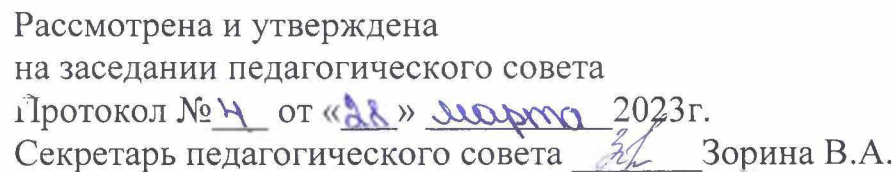 Рассмотрена и утверждена
на заседании педагогического совета
Протокол № 4 от «28» марта 2023г.
Секретарь педагогического совета Зорина В.А.